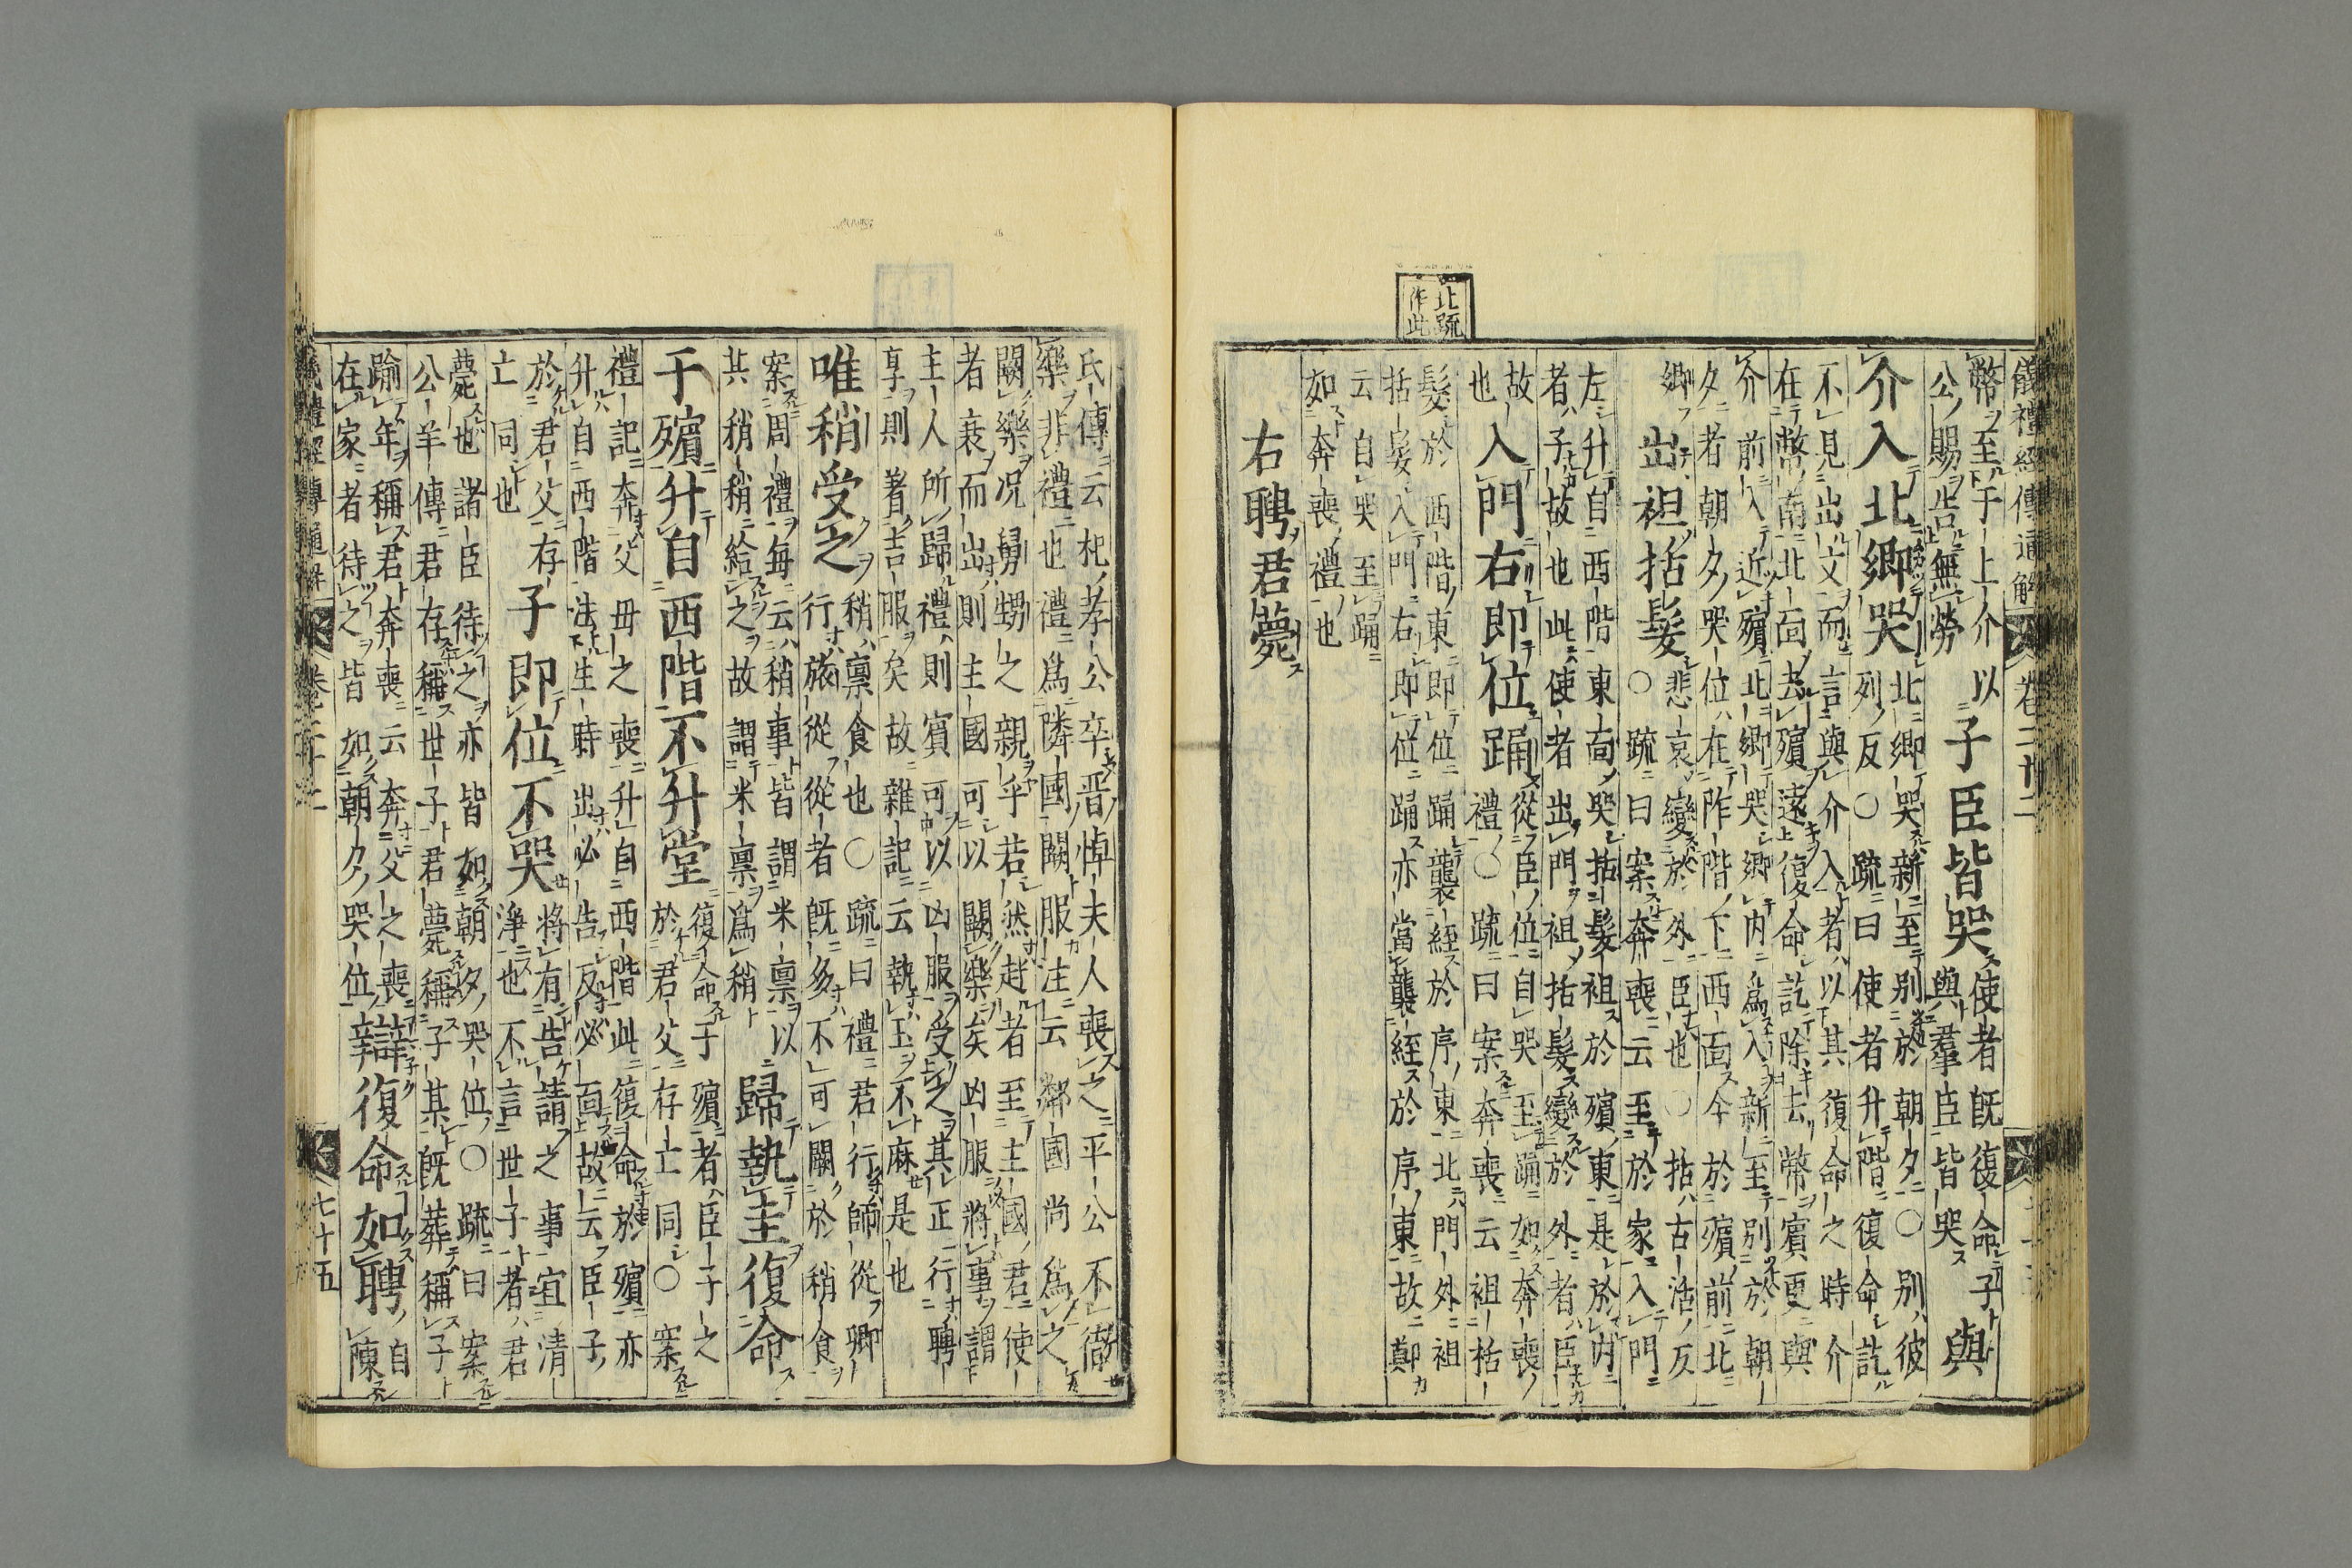 儀禮經傳通解 卷二十二
北疏
作此
幣至于上介以
公賜告無勞
子臣皆哭
使者既復命子
與羣臣皆哭
與
介入北鄉哭
北鄉哭新至別於朝夕○別彼
列反○疏曰使者升階復命訖
不見出文而言與介入者以其復命之時介
在幣南北面去殯遠復命訖除去幣賓更與
介前入近殯北鄉哭鄉內為入新至別於朝
夕者朝夕哭位在阼階下西面今於殯前北
鄉
出袒括髮
悲哀變於外臣也○括古活反
○疏曰案奔喪云至於家入門
左升自西階東面哭括髮袒於殯東是於內
者子故也此使者出門袒括髮變於外者臣
故
也
入門右即位踊
從臣位自哭至踊如奔喪
禮○疏曰案奔喪云袒括
髮於西階東即位踊襲絰於序東北門外袒
括髮入門右即位踊亦當襲絰於序東故鄭
云自哭至踊
如奔喪禮也
右聘君薨
氏傳云杞孝公卒晋悼夫人喪之平公不徹
樂非禮也禮為隣國闕服注云鄰國尚為之
闕樂况舅甥之親乎若然赴者至主國君使
者衰而出則主國可以闕樂矣凶服將事謂
主人所歸禮則賓可以凶服受之其正行聘
享則著吉服矣故雜記云執玉不麻是也
唯稍受之
稍稟食也○疏曰禮君行師從卿
行旅從從者既多不可闕於稍食
案周禮每云稍事皆謂米稟以
其稍稍給之故謂米稟為稍
歸執圭復命
于殯升自西階不升堂
復命于殯者臣子之
於君父存亡同○案
禮記奔父母之喪升自西階此復命於殯亦
升自西階法生時出必告反必面故云臣子
於君父存
亡同也
子即位不哭
將有告請之事宜清
淨也不言世子者君
薨也諸臣待之亦皆如朝夕哭位○疏曰案
公羊傳君存稱世子君薨稱子某既葬稱子
踰年稱君奔喪云奔父之喪
在家者待之皆如朝夕哭位
辯復命如聘
自
陳
儀禮經傳通解 卷二十二 七十五